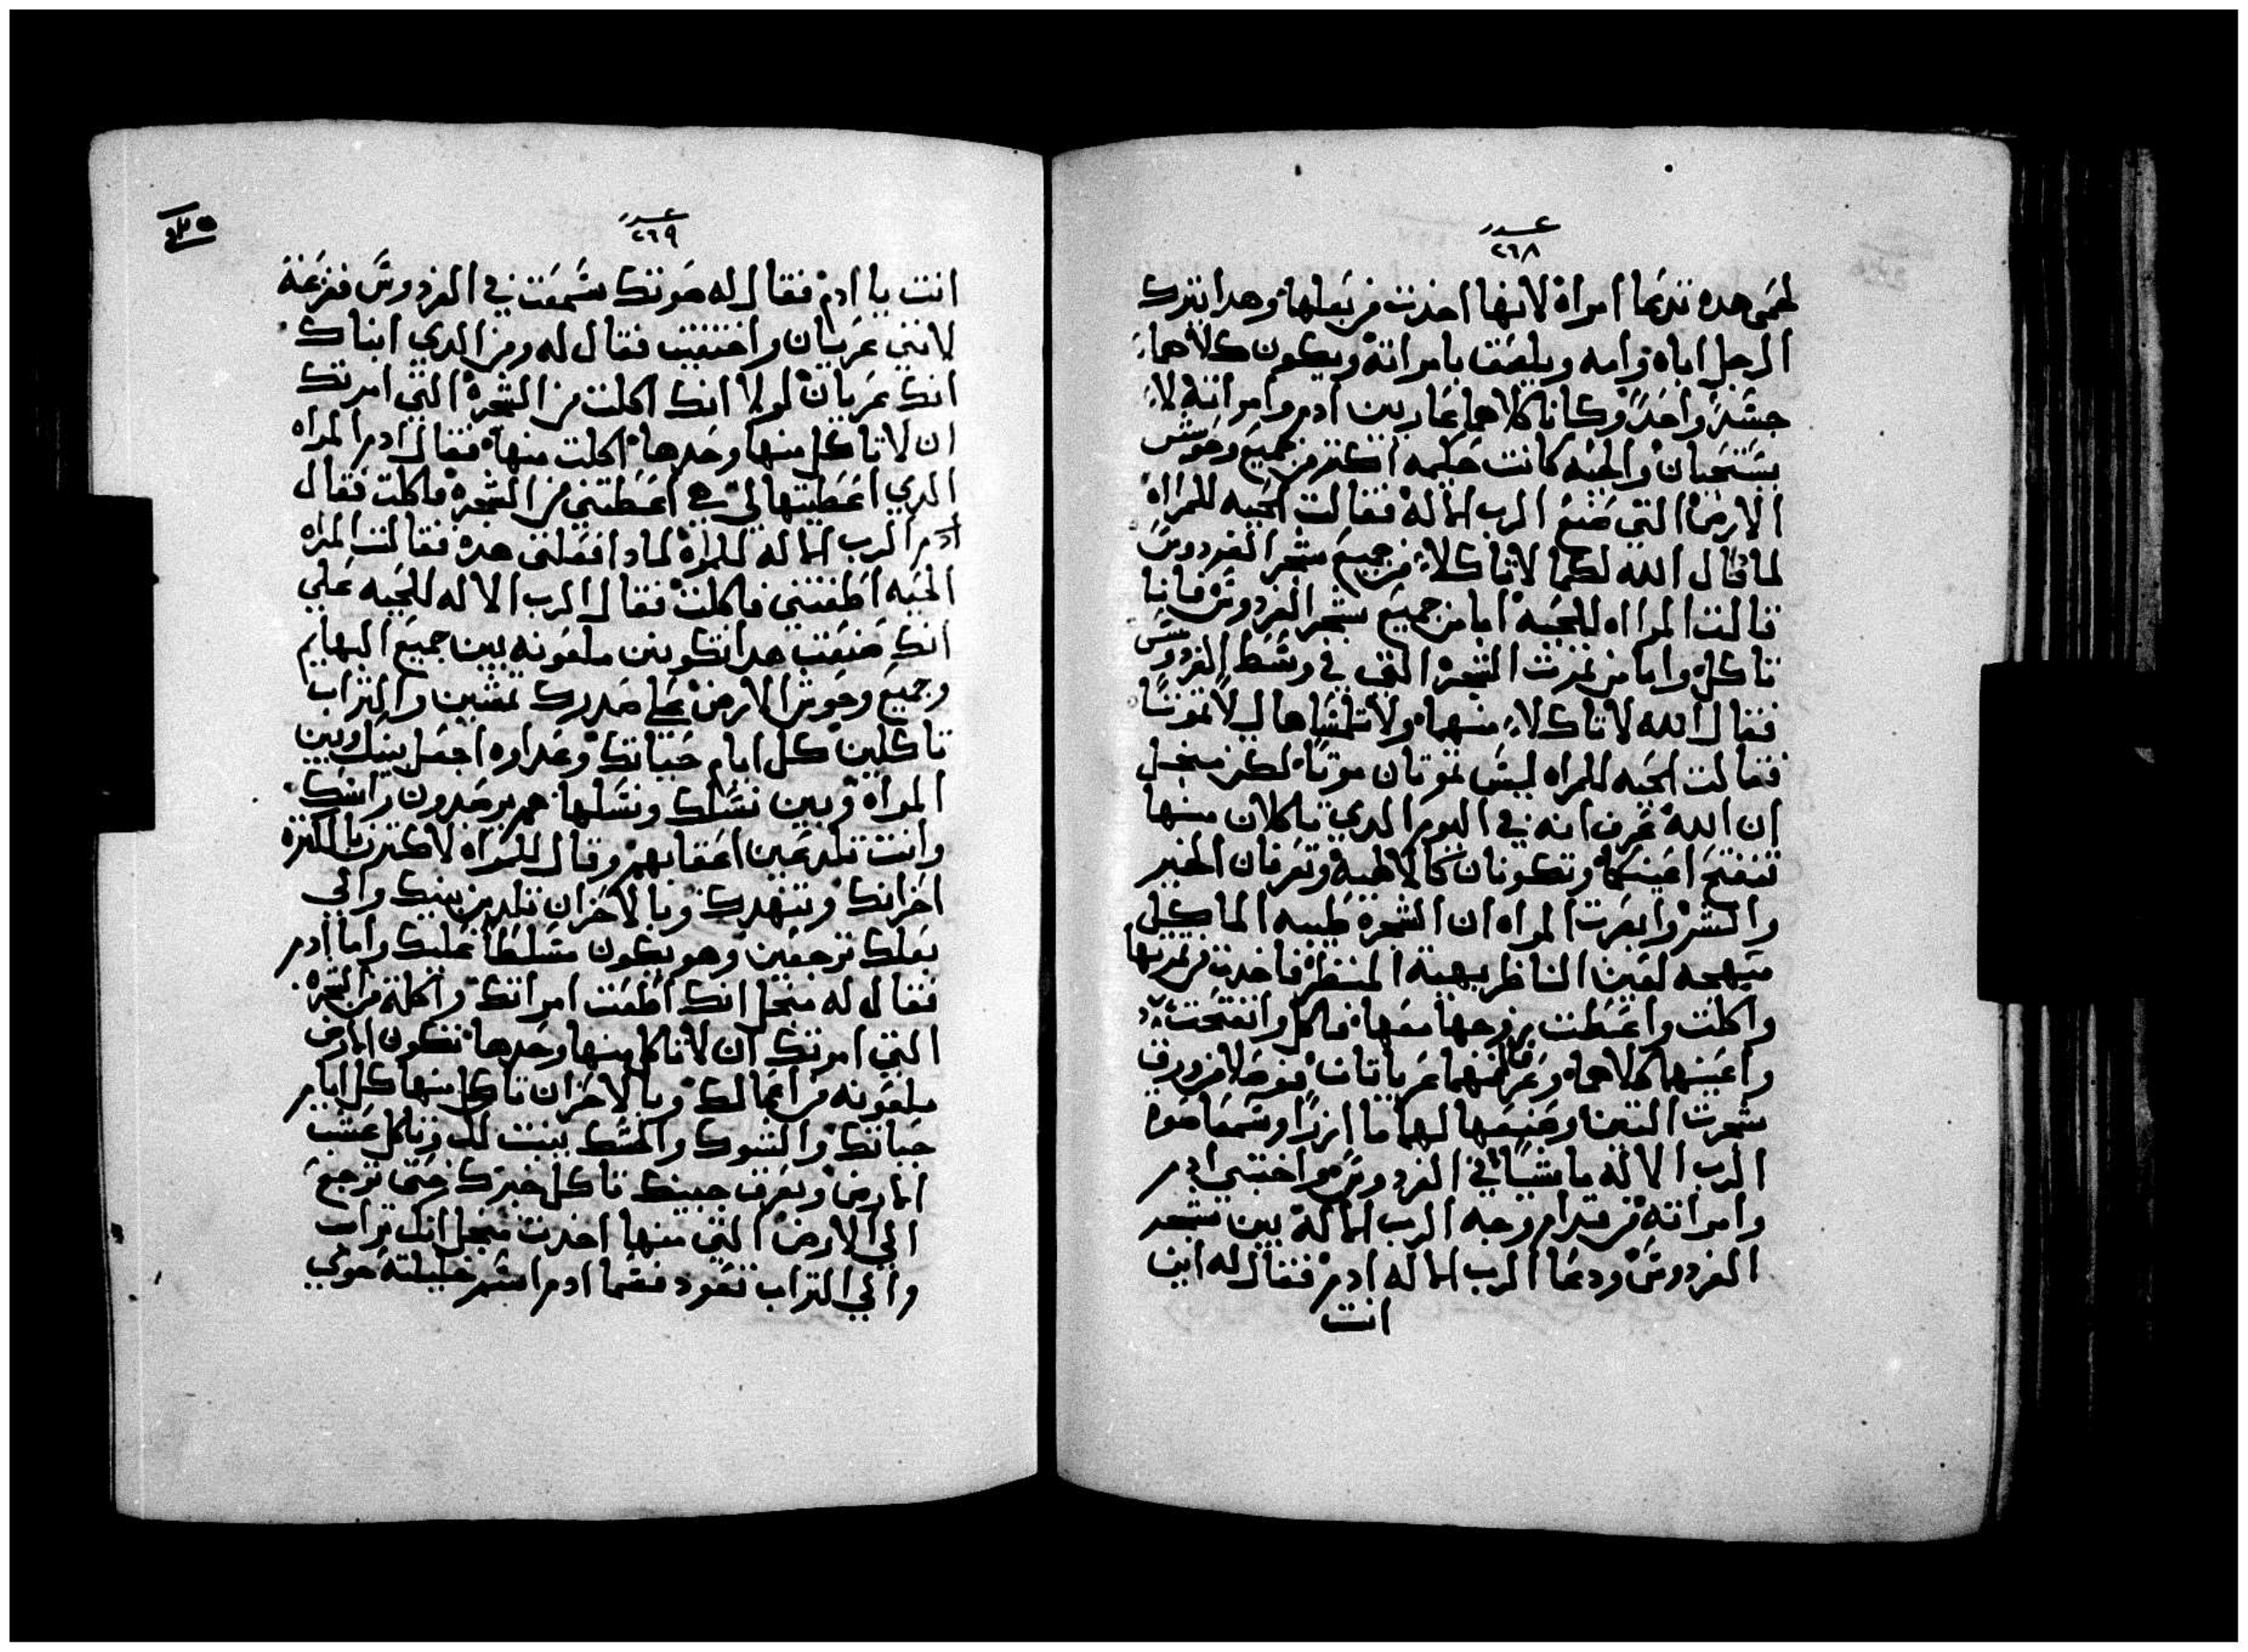 عدد
٢٦٨
لحمى هده تدعا امراة لانها اخدت من بعلها وهدا يترك
الرجل اباه وامه ويلصق بامراته ويكون كلاهما
جسدا واحدا وكانا كلاهما عاريين ادم وامراته لا
يستحيان والحيه كانت حكيمه اكتر من جميع وحوش
الارض التي صنع الرب الاله فقالت الحيه للمراة
لما قال الله لكما لا تاكلا من جميع شجر الفردوس
قالت المرااه للحية اما من جميع شجر الفردوس فاننا
ناكل واما من تمرت الشجرة التي في وسط الفردوس
فقال الله لا تاكلا منها ولا تلمساها ليلا تموتا
فقالت الحيه للمراه ليس تموتان موتا لكن منجل
ان الله عرف انه في اليوم الدي تاكلان منها
تنفتح اعينكما وتكونان كالالهية وتعرفان الخير
والشر وابصرت المراه ان الشجرة طيبه الماكل
مبهجه لعين الناظر بهية المنظر فاخدت من تمرتها
واكلت واعطت زوجها معها فاكل وانفتحت
واعينهما كلاهما وعرفا انهما عريانان فوصلا من ورق
شجرت التين وصنعها لهما مازرا وسمعا صوة
الرب الاله ماشيا في الفردوس واختبي ادم
وامراته من قدام وجه الرب الاله بين شجر
الفردوس ودعا الرب الاله ادم فقال له اين
انت
عدد
٢٦٩
انت يا ادم فقال له صوتك سمعت في الفردوس ففزعة
لانني عريان واختفيت فقال له ومن الدي انباك
انك عريان لولا انك اكلت من الشجرة التي امرتك
ان لا تاكل منها وحدها اكلت منها فقال ادم المراه
الدي اعطيتها لي هي اعطتني من الشجرة فاكلت فقال
ادم الرب الاله للمراة لمادا فعلتي هده فقالت المراه
الحيه اطغتني فاكلت فقال الرب الاله للحيه علي
انك صنعت هدا تكونين ملعونه بين جميع البهايم
وجميع وحوش الارض علي صدرك تمشين والتراب
تاكلين كل ايام حياتك وعداوه اجعل بينك وبين
المراة وبين نسلك ونسلها هم يرصدون راسك
وانت تلدعين اعقابهم وقال للمراه لاكترن بالكترة
احزانك وتنهدك وبالاحزان تلدين بنيك والي
بعلك ترجعين وهو يكون مسلطا عليك واما ادم
فقال له منجل انك اطعت امراتك واكلة من الشجرة
التي امرتك ان لا تاكل منها وحدها تكون الارض
ملعونه من اعمالك وبالاحزان تاكل منها كل ايام
حياتك والشوك والحسك ينبت لك وتاكل عشب
الارض وبعرق جبينك تاكل خبزك حتى ترجع
الي الارض التي منها اخدت منجل انك تراب
والي التراب تعود فسما ادم اسم خليلته حوي